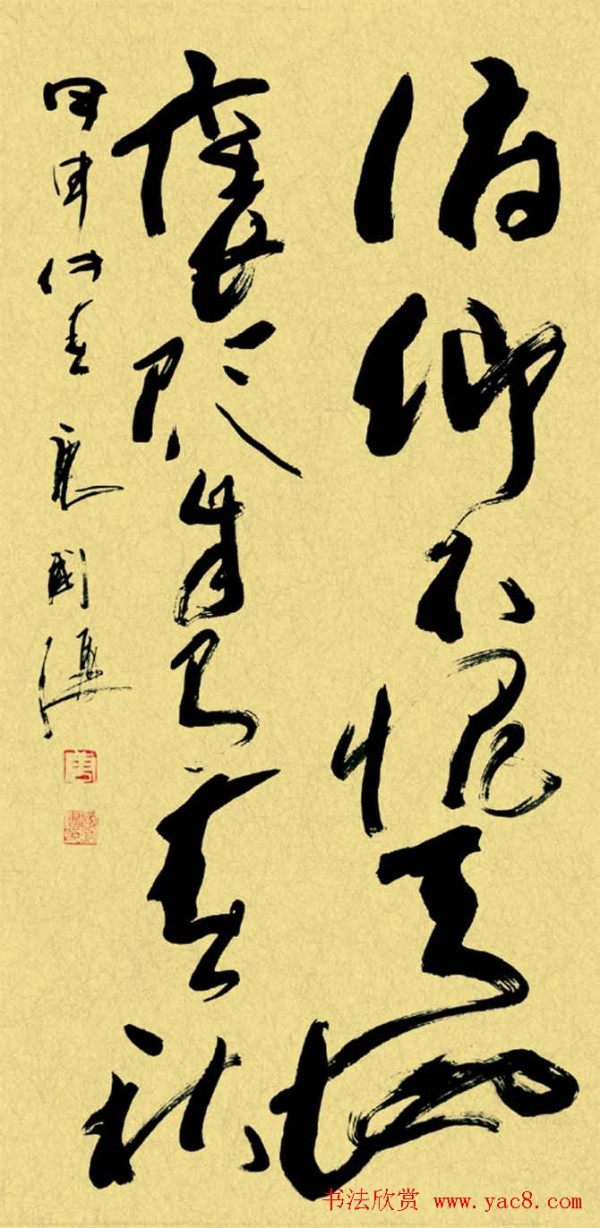 俯仰不愧天地
褒貶自有春秋
仲春
书法欣赏 www.yac8.com